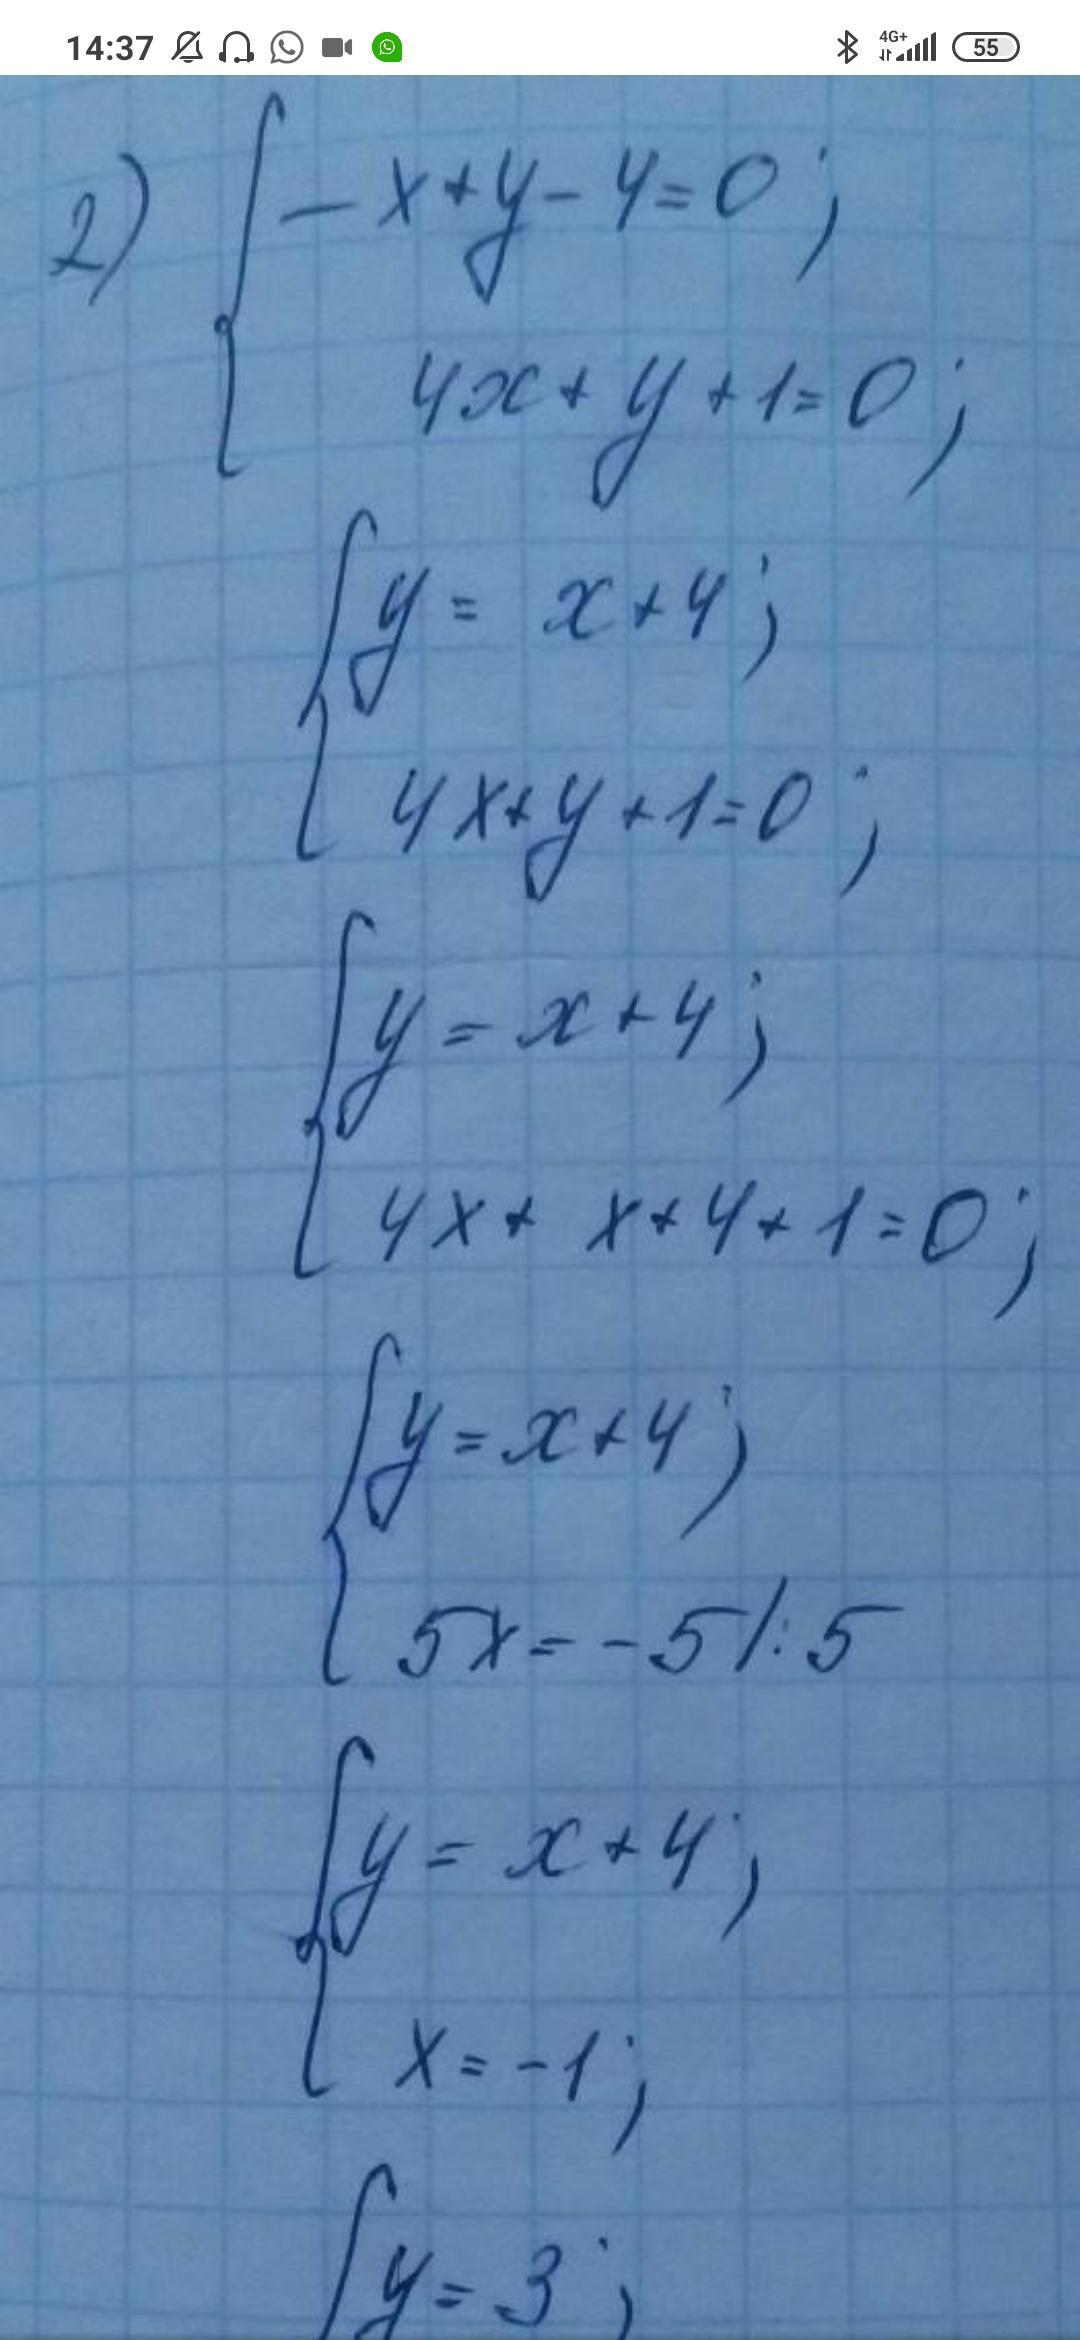 14:37 4G+ 55
2) { -x+y-4=0;
4x+y+1=0;
{ y= x+4;
4x+y+1=0;
{ y=x+4;
4x+ x+4+1=0;
{ y=x+4;
5x=-5 |:5
{ y= x+4;
x=-1;
{ y=3;